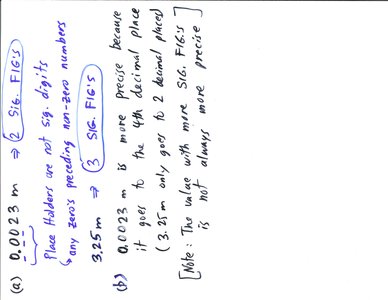 (a) 0.0023 m ⇒ 2 SIG. FIG'S
Place Holders are not sig. digits
any zero's preceding non-zero numbers
3.25 m ⇒ 3 SIG. FIG'S
(b) 0.0023 m is more precise because
it goes to the 4th decimal place
(3.25 m only goes to 2 decimal places)
[Note: The value with more SIG. FIG.'s
is not always more precise]